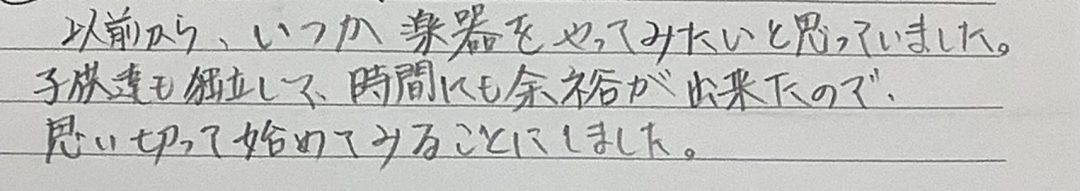 以前から、いつか楽器をやってみたいと思っていました。
子供達も独立して、時間にも余裕が出来たので、
思い切って始めてみることにしました。